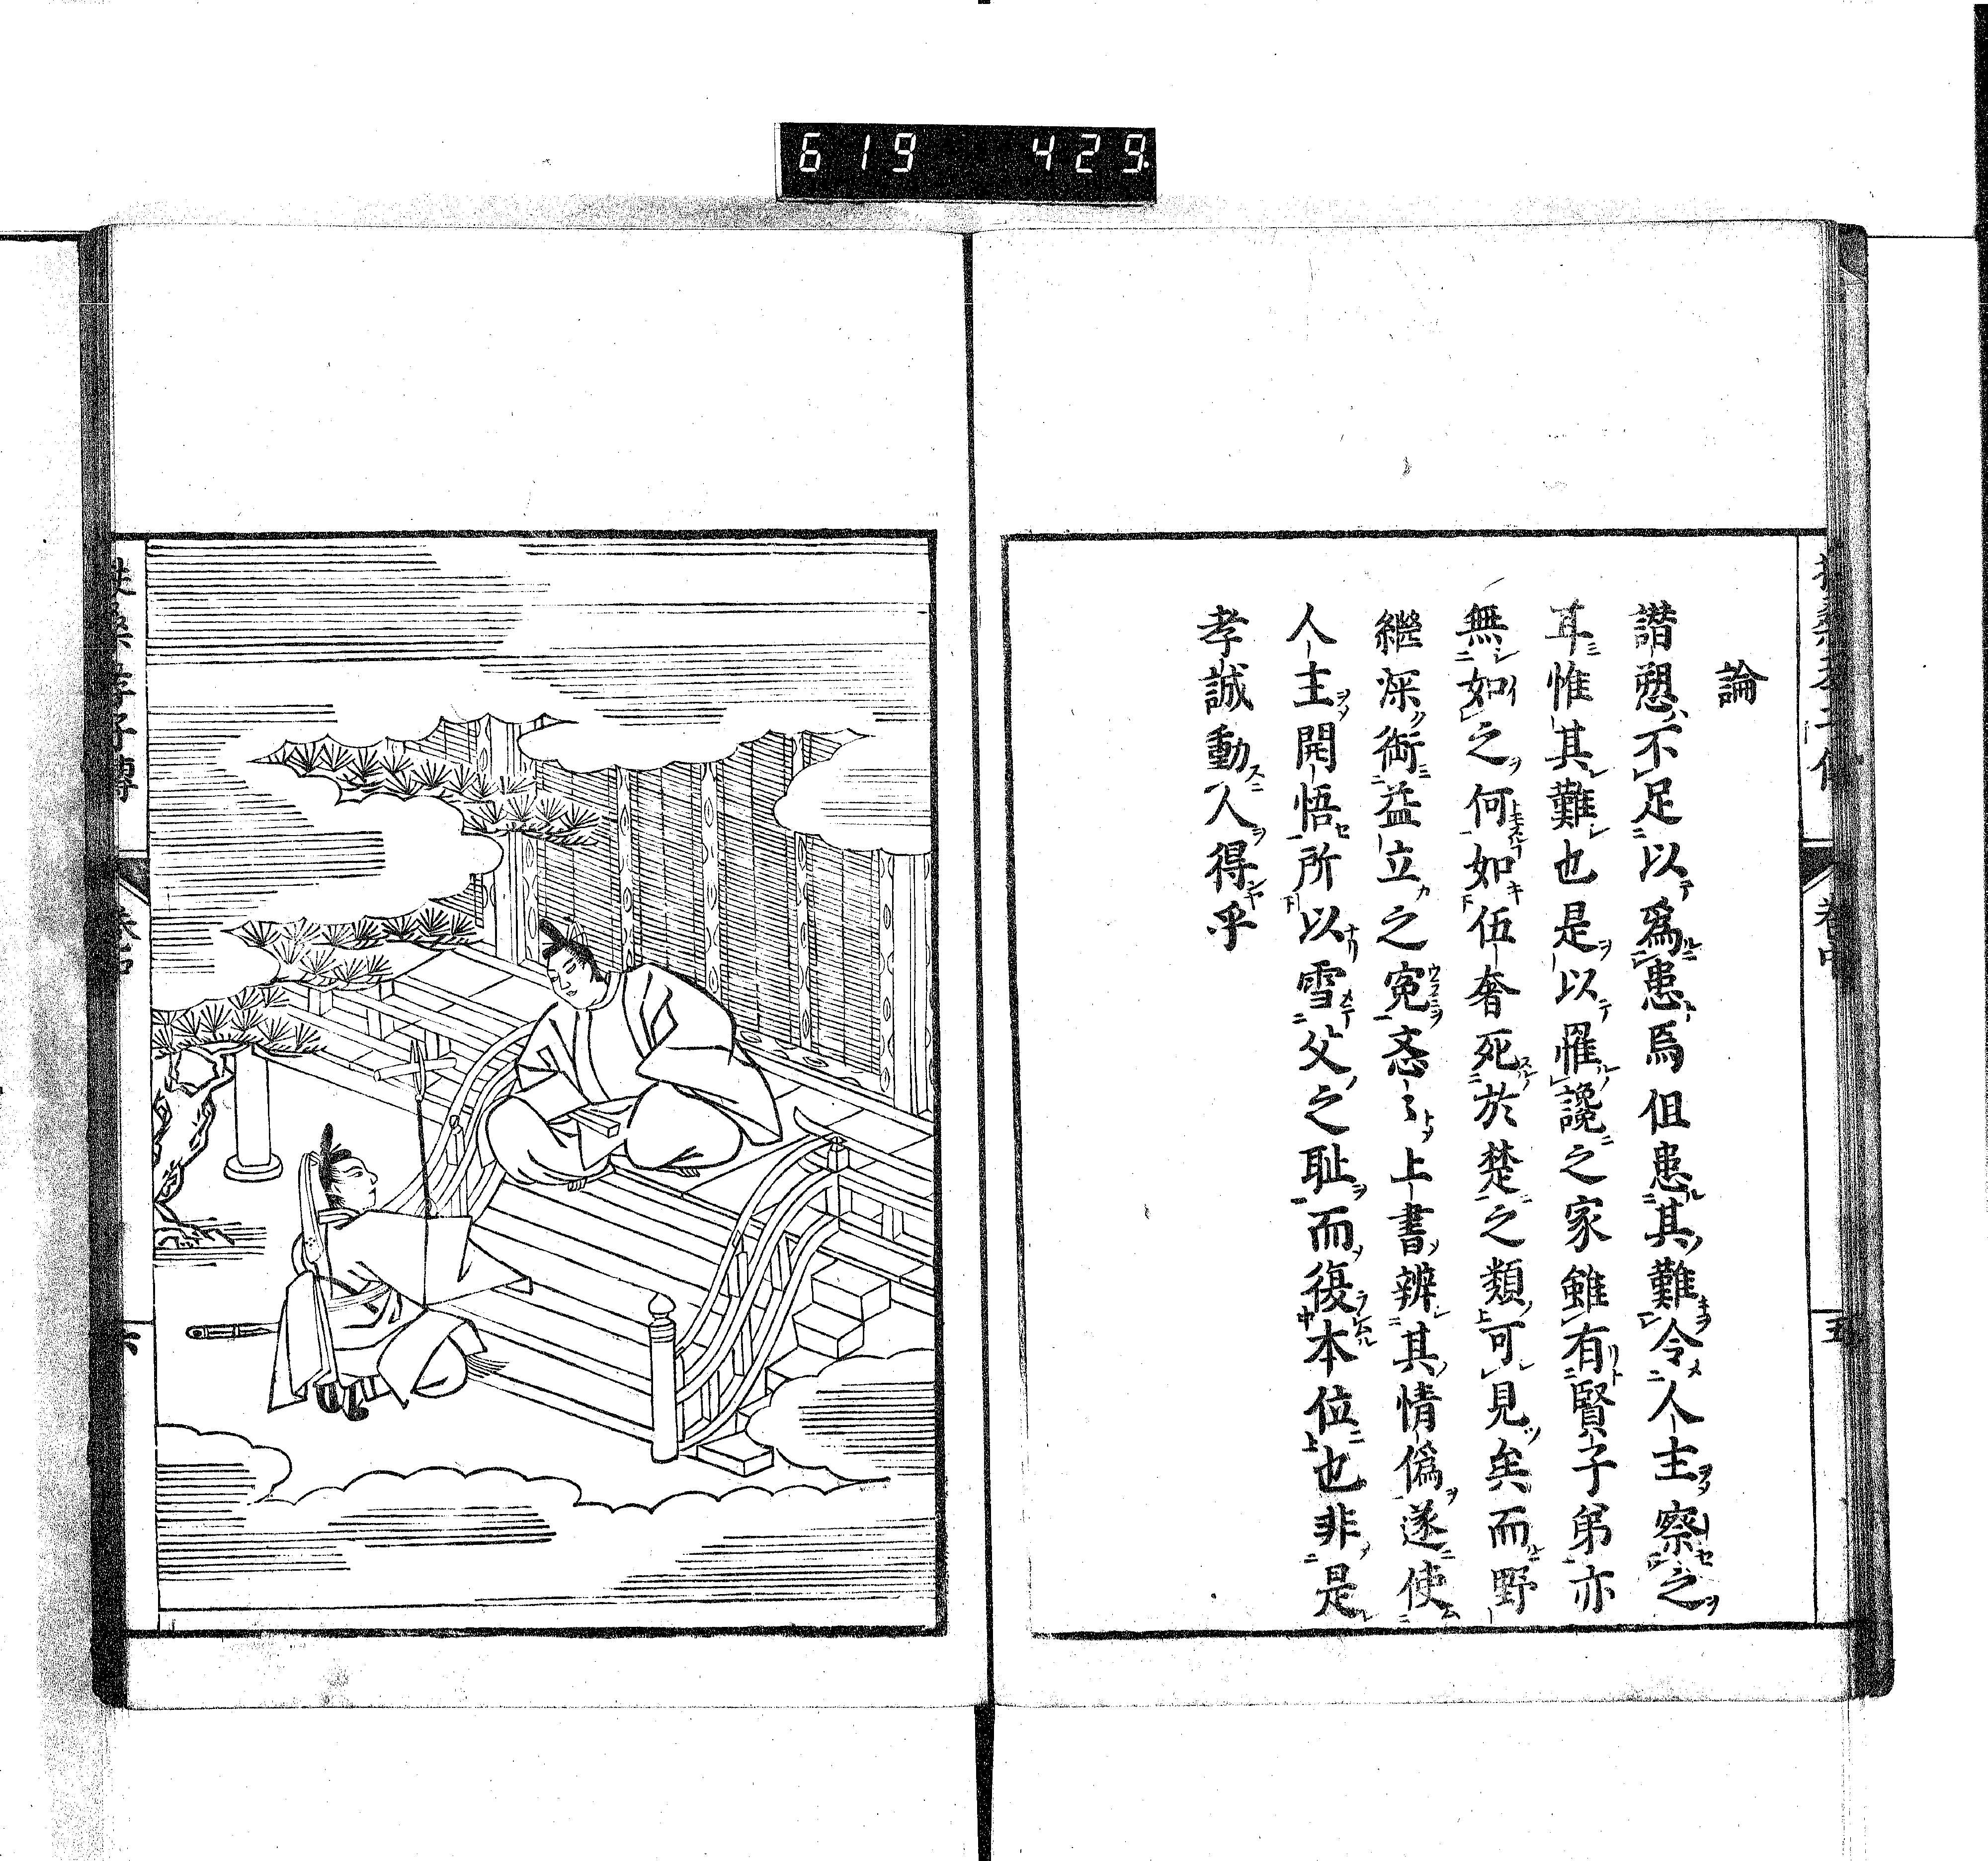 619 429
論
譖愬不足以爲患焉但患其難令人主察之
耳惟其難也是以罹讒之家雖有賢子弟亦
無如之何如伍奢死於楚之類可見矣而野
繼深銜益立之寃忞〻上書辨其情僞遂使
人主開悟所以雪父之耻而復本位也非是
孝誠動人得乎
五
六